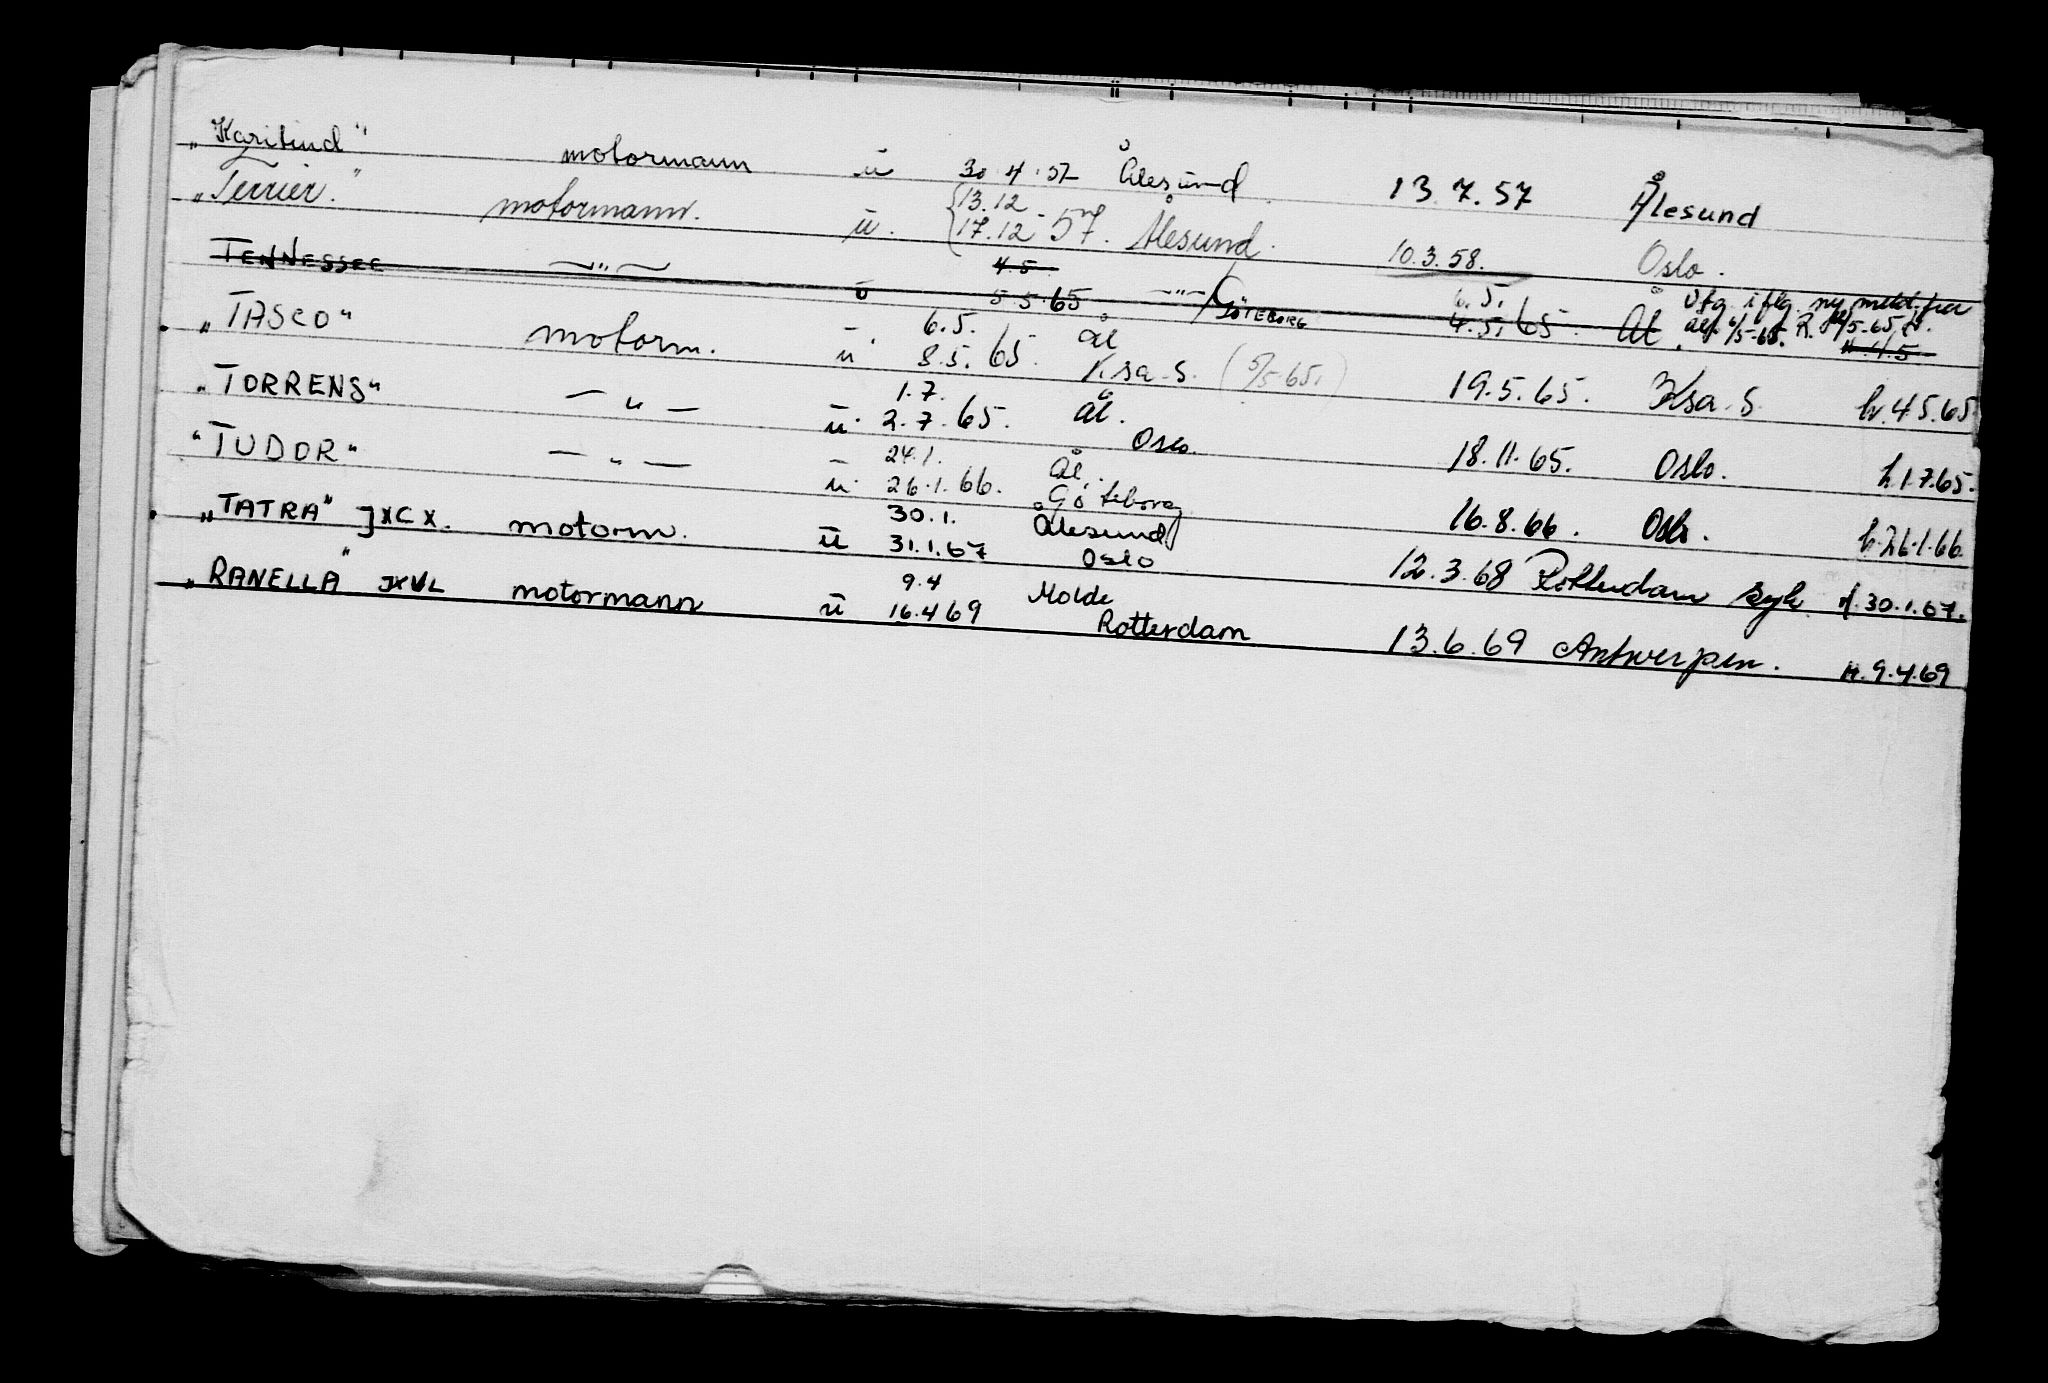 "Karitind" motormann u 30.4.57 Ålesund 13.7.57 Ålesund
"Terrier" motormann. u. {13.12 17.12 - 57. Ålesund. 10.3.58. Oslo.
TENNESSEE — " — u 4.5. 5.5.65 — " — / GÖTEBORG 6.5. 4.5.65. Ål Utg. iflg. ny meld. fra Ål. 6/5-65. R. /5-65. H. 4.5
"TASCO" motorm. u. 6.5. 8.5.65. Ål Ksa. S. (5/5 65.) 19.5.65. Ksa. S. h. 4.5.65
"TORRENS" — " — u. 1.7. 2.7.65. Ål. Oslo. 18.11.65. Oslo. h. 1.7.65.
"TUDOR" — " — u. 24.1. 26.1.66. Ål. Göteborg. 16.8.66. Oslo. h. 26.1.66.
"TATRA" JXCX. motorm. u 30.1. 31.1.67 Ålesund Oslo 12.3.68 Rotterdam syk h. 30.1.67.
"RANELLA" JXVL motormann u 9.4 16.4 69 Molde Rotterdam 13.6.69 Antwerpen. H. 9.4.69